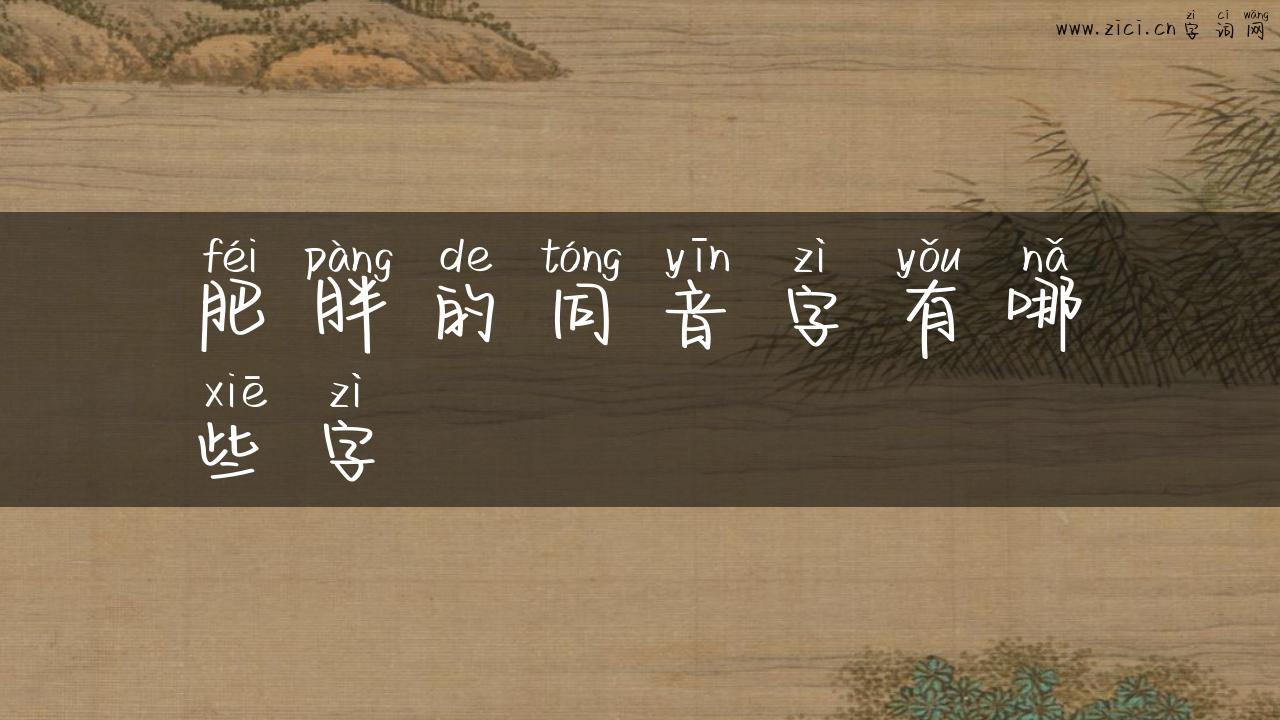 zì cí wǎng
www.zici.cn 字 词 网
féi pàng de tóng yīn zì yǒu nǎ
肥 胖 的 同 音 字 有 哪
xiē zì
些 字